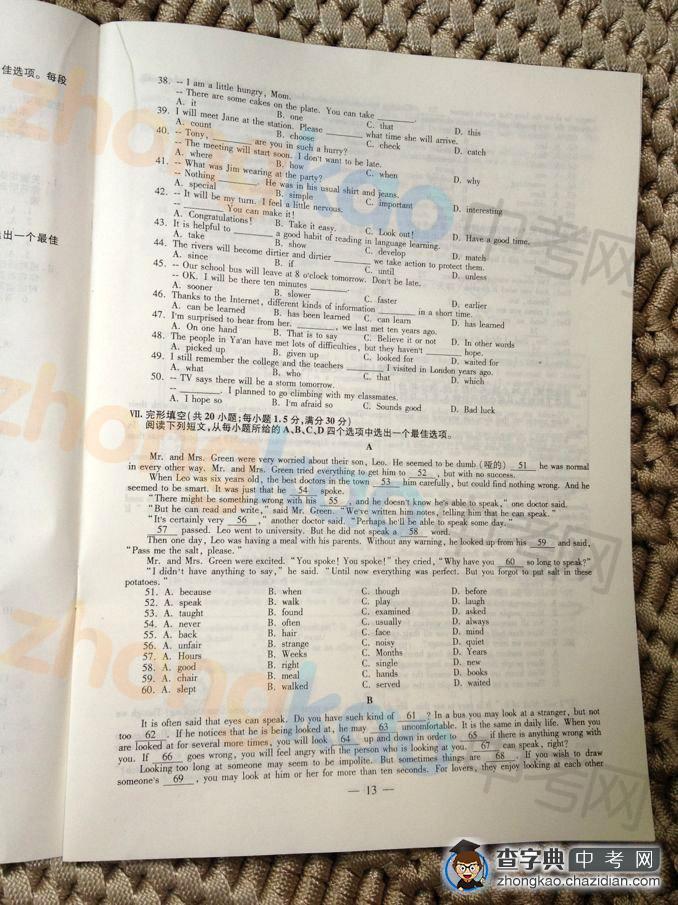 佳选项。每段
出一个最佳
38. -- I am a little hungry, Mom.
-- There are some cakes on the plate. You can take ________.
A. it B. one C. that D. this
39. I will meet Jane at the station. Please ________ what time she will arrive.
A. count B. choose C. check D. catch
40. -- Tony, ________ are you in such a hurry?
-- The meeting will start soon. I don't want to be late.
A. where B. how C. when D. why
41. -- What was Jim wearing at the party?
-- Nothing ________. He was in his usual shirt and jeans.
A. special B. simple C. important D. interesting
42. -- It will be my turn. I feel a little nervous.
-- ________ You can make it!
A. Congratulations! B. Take it easy. C. Look out! D. Have a good time.
43. It is helpful to ________ a good habit of reading in language learning.
A. take B. show C. develop D. match
44. The rivers will become dirtier and dirtier ________ we take action to protect them.
A. since B. if C. until D. unless
45. -- Our school bus will leave at 8 o'clock tomorrow. Don't be late.
-- OK. I will be there ten minutes ________.
A. sooner B. slower C. faster D. earlier
46. Thanks to the Internet, different kinds of information ________ in a short time.
A. can be learned B. has been learned C. can learn D. has learned
47. I'm surprised to hear from her. ________, we last met ten years ago.
A. On one hand B. That is to say C. Believe it or not D. In other words
48. The people in Ya'an have met lots of difficulties, but they haven't ________ hope.
A. picked up B. given up C. looked for D. waited for
49. I still remember the college and the teachers ________ I visited in London years ago.
A. what B. who C. that D. which
50. -- TV says there will be a storm tomorrow.
-- ________. I planned to go climbing with my classmates.
A. I hope so B. I'm afraid so C. Sounds good D. Bad luck
Ⅶ. 完形填空(共20小题;每小题1.5分,满分30分)
阅读下列短文,从每小题所给的A、B、C、D四个选项中选出一个最佳选项。
A
Mr. and Mrs. Green were very worried about their son, Leo. He seemed to be dumb (哑的) 51 he was normal
in every other way. Mr. and Mrs. Green tried everything to get him to 52 , but with no success.
When Leo was six years old, the best doctors in the town 53 him carefully, but could find nothing wrong. And he
seemed to be smart. It was just that he 54 spoke.
"There might be something wrong with his 55 , and he doesn't know he's able to speak," one doctor said.
"But he can read and write," said Mr. Green. "We've written him notes, telling him that he can speak."
"It's certainly very 56 ," another doctor said. "Perhaps he'll be able to speak some day."
57 passed. Leo went to university. But he did not speak a 58 word.
Then one day, Leo was having a meal with his parents. Without any warning, he looked up from his 59 and said,
"Pass me the salt, please."
Mr. and Mrs. Green were excited. "You spoke! You spoke!" they cried, "Why have you 60 so long to speak?"
"I didn't have anything to say," he said. "Until now everything was perfect. But you forgot to put salt in these
potatoes."
51. A. because B. when C. though D. before
52. A. speak B. walk C. play D. laugh
53. A. taught B. found C. examined D. asked
54. A. never B. often C. usually D. always
55. A. back B. hair C. face D. mind
56. A. unfair B. strange C. noisy D. quiet
57. A. Hours B. Weeks C. Months D. Years
58. A. good B. right C. single D. new
59. A. chair B. meal C. hands D. books
60. A. slept B. walked C. served D. waited
B
It is often said that eyes can speak. Do you have such kind of 61 ? In a bus you may look at a stranger, but not
too 62 . If he notices that he is being looked at, he may 63 uncomfortable. It is the same in daily life. When you
are looked at for several more times, you will look 64 up and down in order to 65 if there is anything wrong with
you. If 66 goes wrong, you will feel angry with the person who is looking at you. 67 can speak, right?
Looking too long at someone may seem to be impolite. But sometimes things are 68 . If you wish to draw
someone's 69 , you may look at him or her for more than ten seconds. For lovers, they enjoy looking at each other
— 13 —
zhongkao
中考网
zhongkao
中考网
zhongkao
中考网
查字典 中考网
zhongkao.chazidian.com